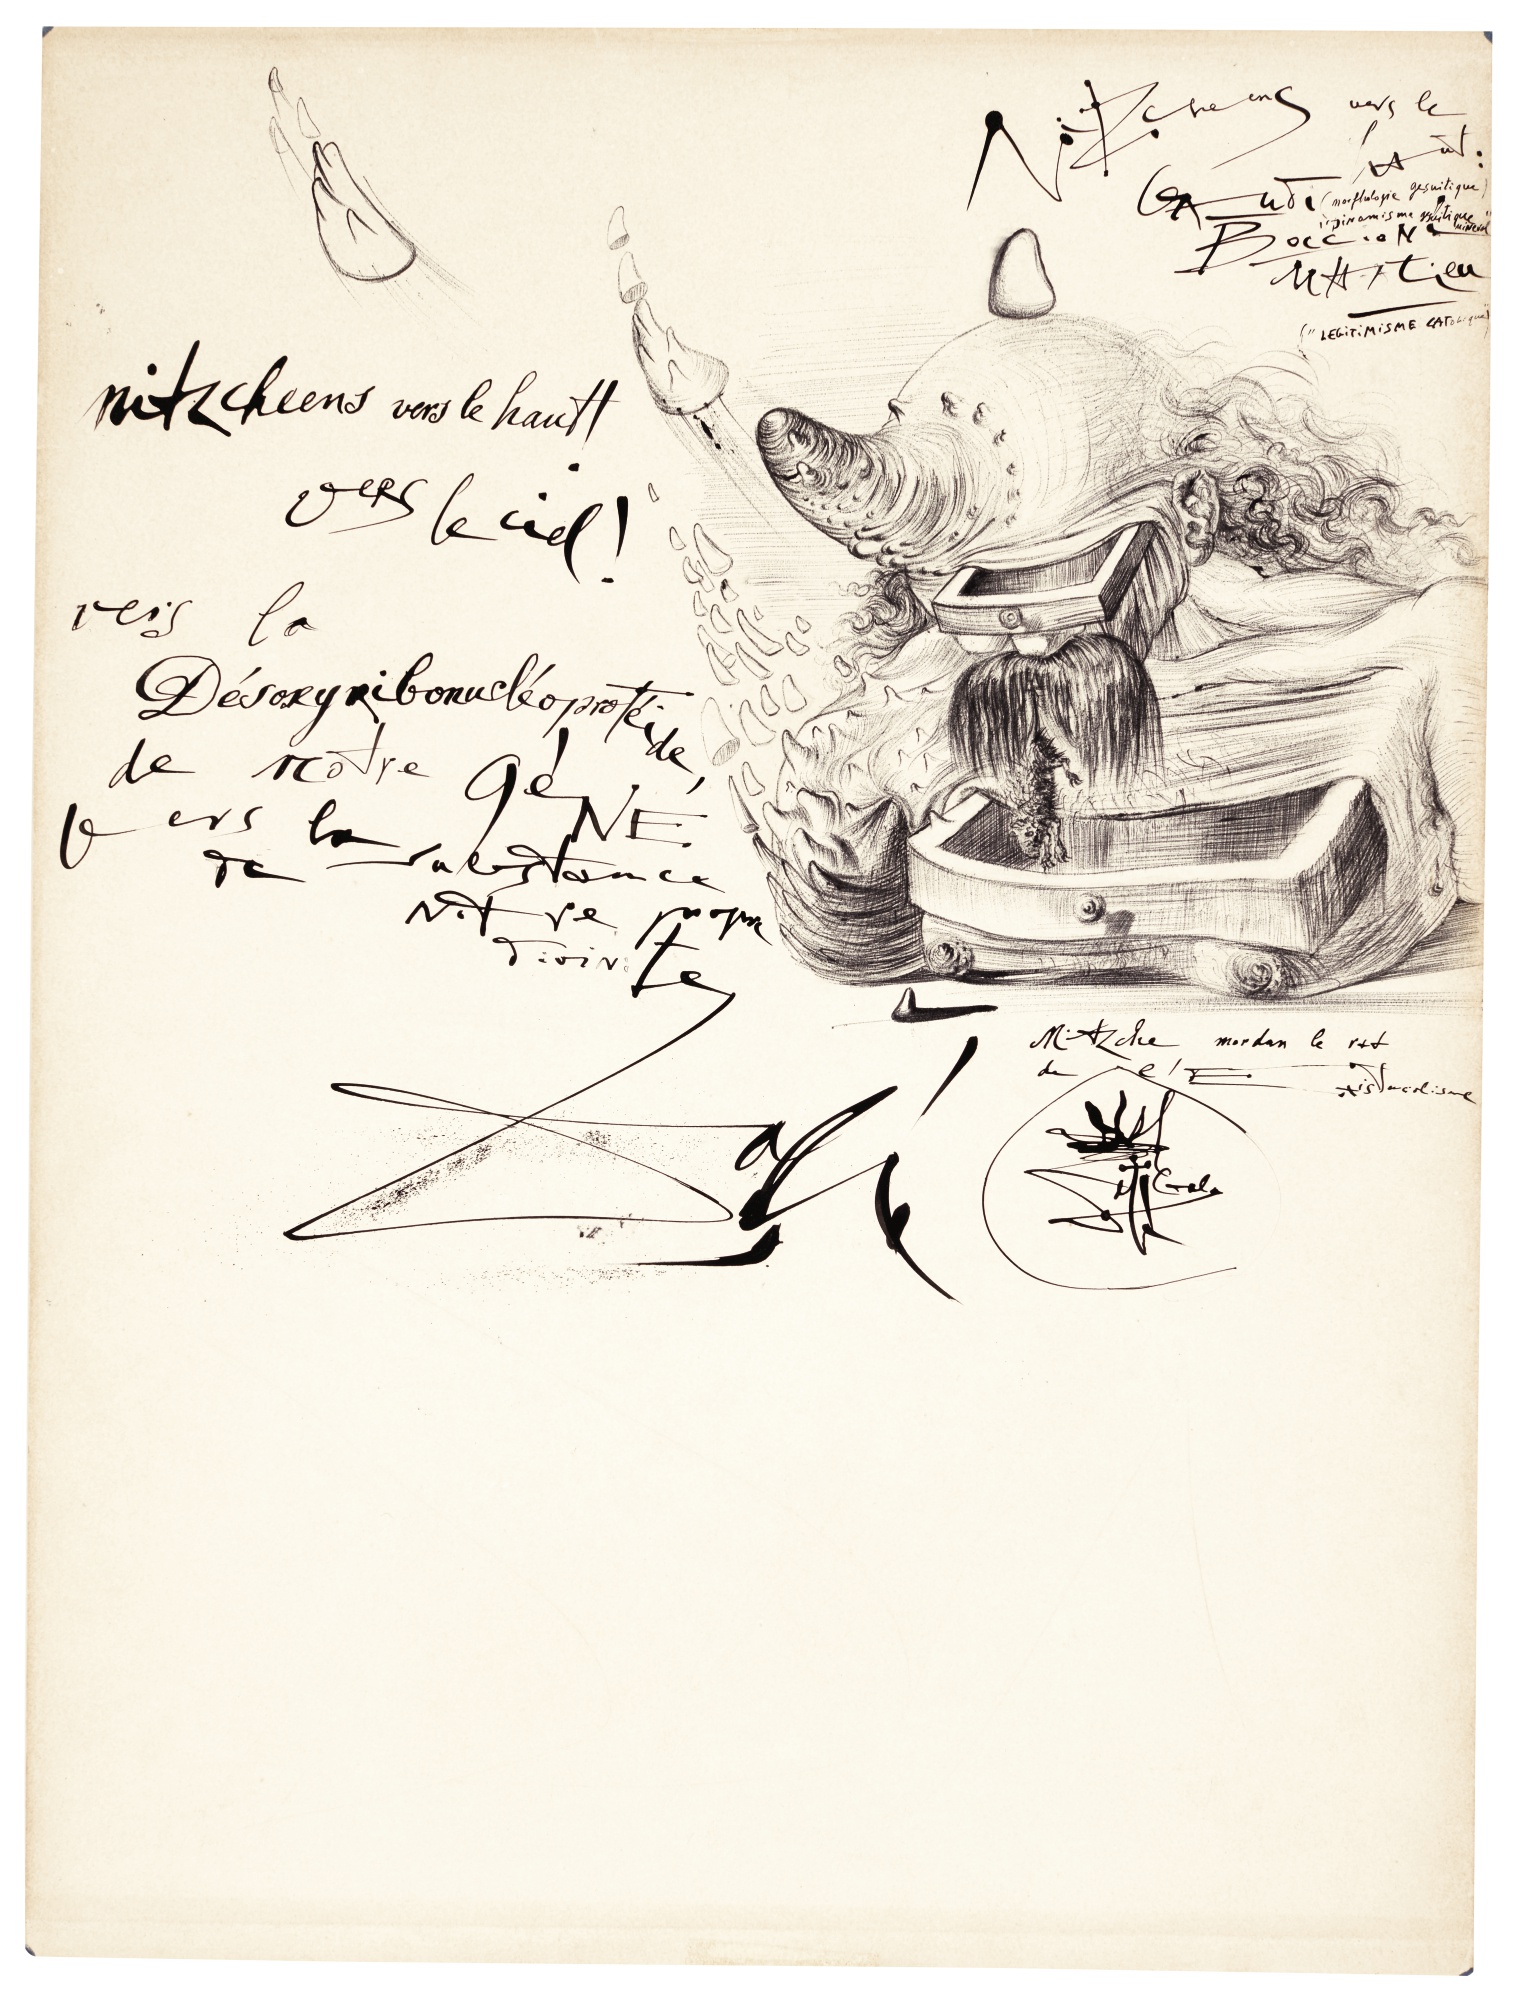 Nitzcheens vers le
haut:
GAudi (morfhologie gesuitique)
BoccioNi
MATieu
("LEGITIMISME CATOLique")
nitzcheens vers le hautt
vers le ciel!
vers la
Désoxyribonucléoprotéide,
de notre géNÉ
vers la
de substance
Notre propre
divinité
Nitzche mordan le rat
de
Dalí
Gala